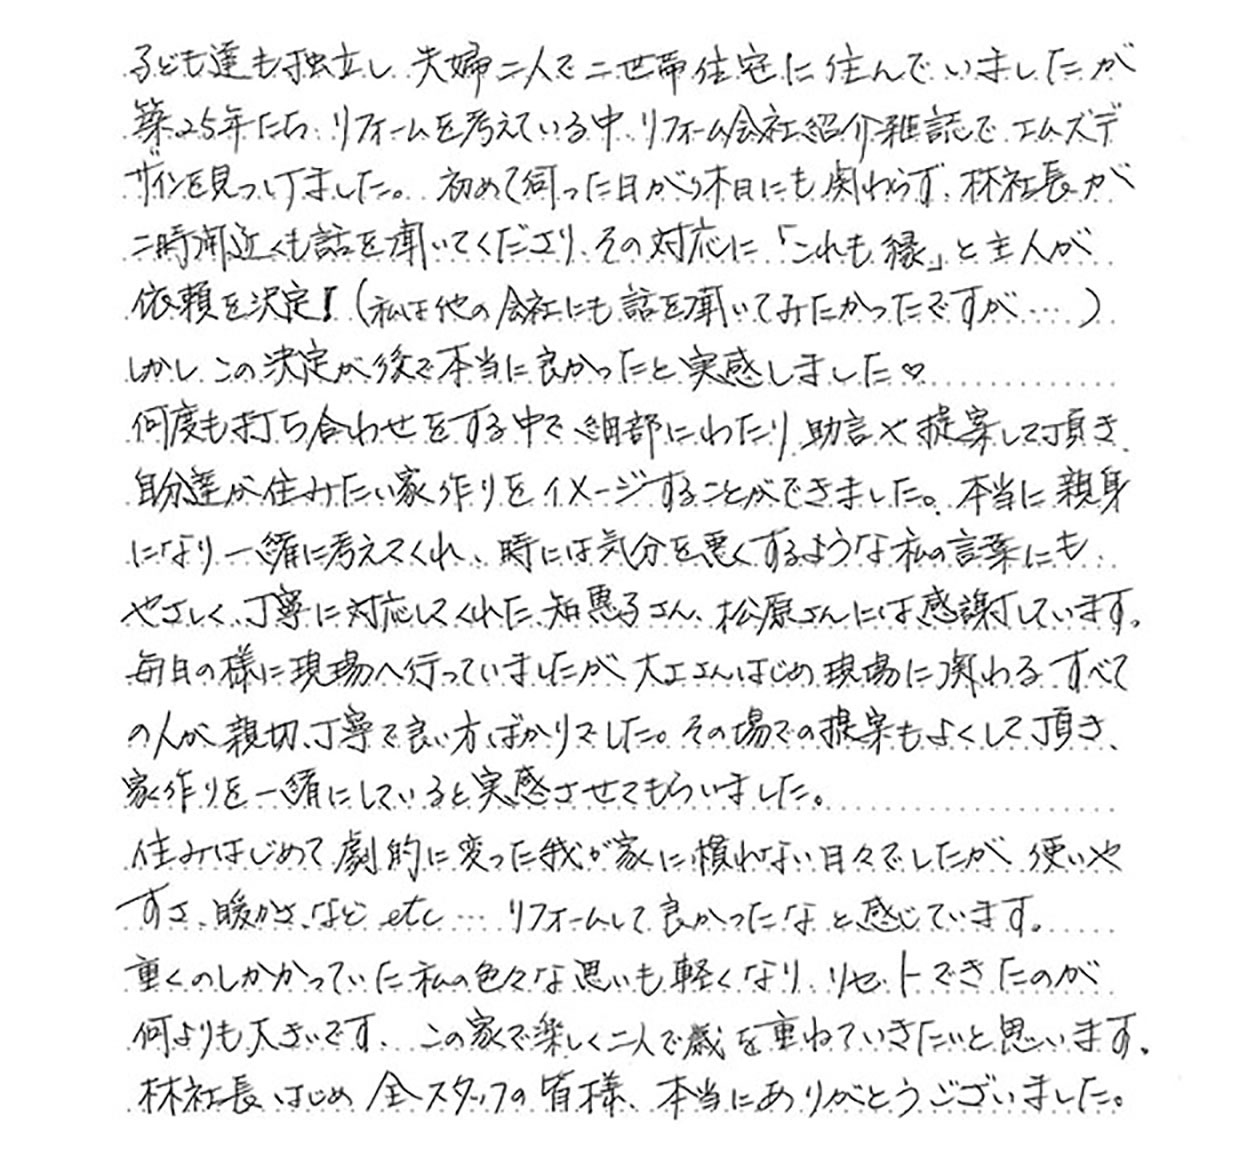 子ども達も独立し、夫婦二人で二世帯住宅に住んでいましたが
築25年たち、リフォームを考えている中、リフォーム会社紹介雑誌で、エムズデ
ザインを見つけました。初めて伺った日が休日にも関わらず、林社長が
二時間近くも話を聞いてくださり、その対応に「これも縁」と主人が
依頼を決定!(私は他の会社にも話を聞いてみたかったですが…)
しかし、この決定が後で本当に良かったと実感しました♡
何度も打ち合わせをする中で、細部にわたり、助言や提案して頂き、
自分達が住みたい家作りをイメージすることができました。本当に親身
になり一緒に考えてくれ、時には気分を悪くするような私の言葉にも、
やさしく、丁寧に対応してくれた、知恵子さん、松原さんには感謝しています。
毎日の様に現場へ行っていましたが大工さんはじめ現場に関わるすべて
の人が、親切、丁寧で良い方ばかりでした。その場での提案もよくして頂き、
家作りを一緒にしていると実感させてもらいました。
住みはじめて劇的に変った我が家に慣れない日々でしたが、使いや
すさ、暖かさ、など etc… リフォームして良かったなと感じています。
重くのしかかっていた私の色々な思いも軽くなり、リセットできたのが
何よりも大きいです。この家で楽しく二人で歳を重ねていきたいと思います。
林社長はじめ全スタッフの皆様、本当にありがとうございました。